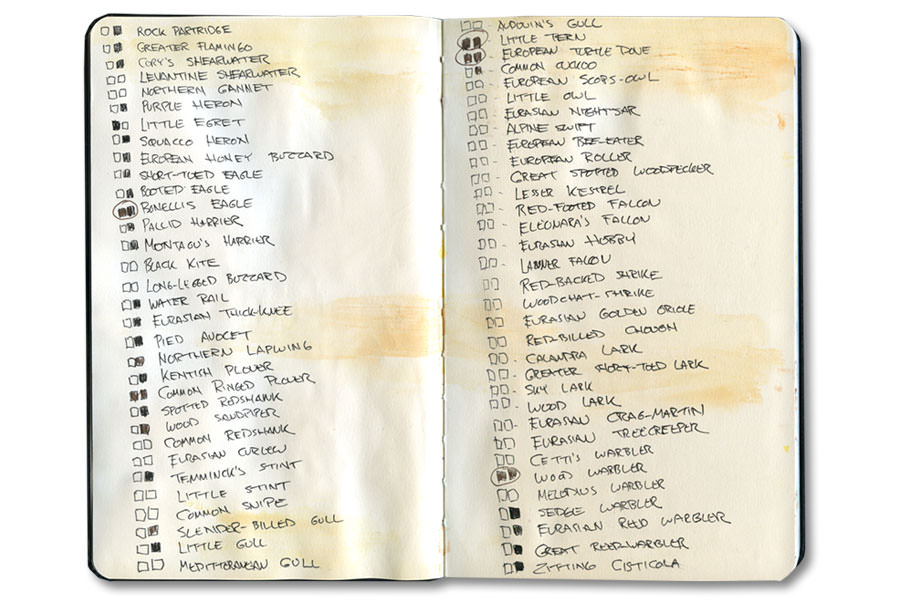 ROCK PARTRIDGE
GREATER FLAMINGO
CORY'S SHEARWATER
LEVANTINE SHEARWATER
NORTHERN GANNET
PURPLE HERON
LITTLE EGRET
SQUACCO HERON
EUROPEAN HONEY BUZZARD
SHORT-TOED EAGLE
BOOTED EAGLE
BONELLIS EAGLE
PALLID HARRIER
MONTAGU'S HARRIER
BLACK KITE
LONG-LEGGED BUZZARD
WATER RAIL
EURASIAN THICK-KNEE
PIED AVOCET
NORTHERN LAPWING
KENTISH PLOVER
COMMON RINGED PLOVER
SPOTTED REDSHANK
WOOD SANDPIPER
COMMON REDSHANK
EURASIAN CURLEW
TEMMINCK'S STINT
LITTLE STINT
COMMON SNIPE
SLENDER-BILLED GULL
LITTLE GULL
MEDITTERANEAN GULL
AUDOUIN'S GULL
LITTLE TERN
EUROPEAN TURTLE DOVE
COMMON CUCKOO
EUROPEAN SCOPS-OWL
LITTLE OWL
EURASIAN NIGHTJAR
ALPINE SWIFT
EUROPEAN BEE-EATER
EUROPEAN ROLLER
GREAT SPOTTED WOODPECKER
LESSER KESTREL
RED-FOOTED FALCON
ELEONARA'S FALCON
EURASIAN HOBBY
LANNER FALCON
RED-BACKED SHRIKE
WOODCHAT-SHRIKE
EURASIAN GOLDEN ORIOLE
RED-BILLED CHOUGH
CALANDRA LARK
GREATER SHORT-TOED LARK
SKY LARK
WOOD LARK
EURASIAN CRAG-MARTIN
EURASIAN TREECREEPER
CETTI'S WARBLER
WOOD WARBLER
MELODIUS WARBLER
SEDGE WARBLER
EURASIAN REED WARBLER
GREAT REED-WARBLER
ZITTING CISTICOLA